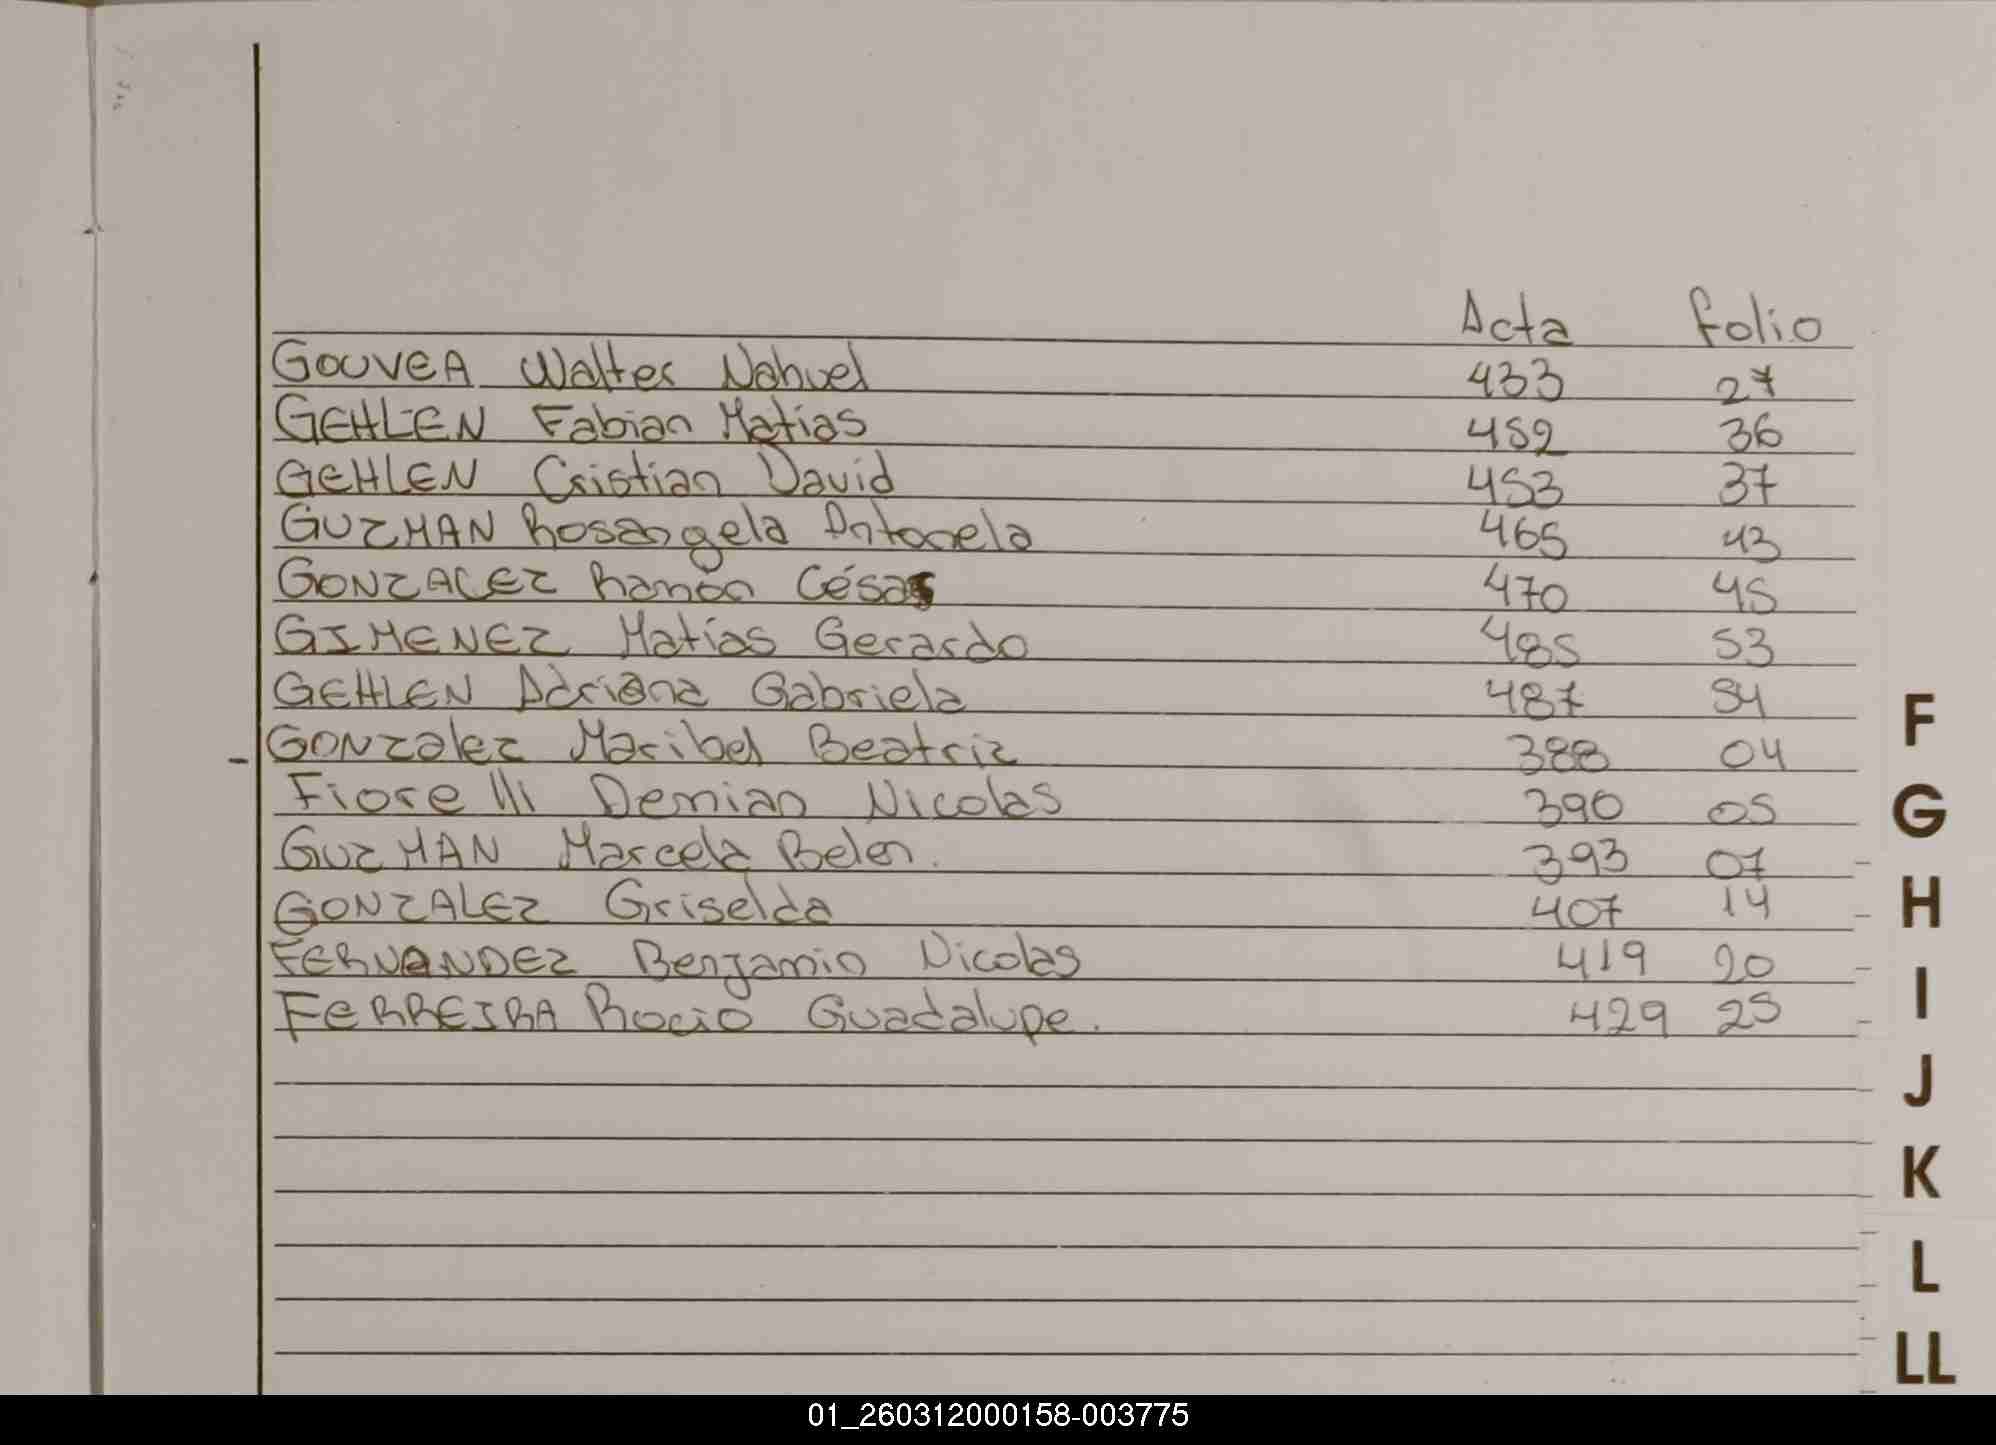 Acta folio
GOUVEA Walter Nahuel 433 27
GEHLEN Fabian Matias 452 36
GEHLEN Cristian David 453 37
GUZMAN Rosangela Antonela 465 43
GONZALEZ Ramón César 470 45
GIMENEZ Matías Gerardo 485 53
GEHLEN Adriana Gabriela 487 54
- GONZalez Maribel Beatriz 388 04
Fiorelli Demian Nicolas 390 05
GUZMAN Marcela Belen. 393 07
GONZALEZ Griselda 407 14
FERNANDEZ Benjamin Nicolas 419 20
FERREIRA Rocio Guadalupe. 429 25
F
G
H
I
J
K
L
LL
01_260312000158-003775